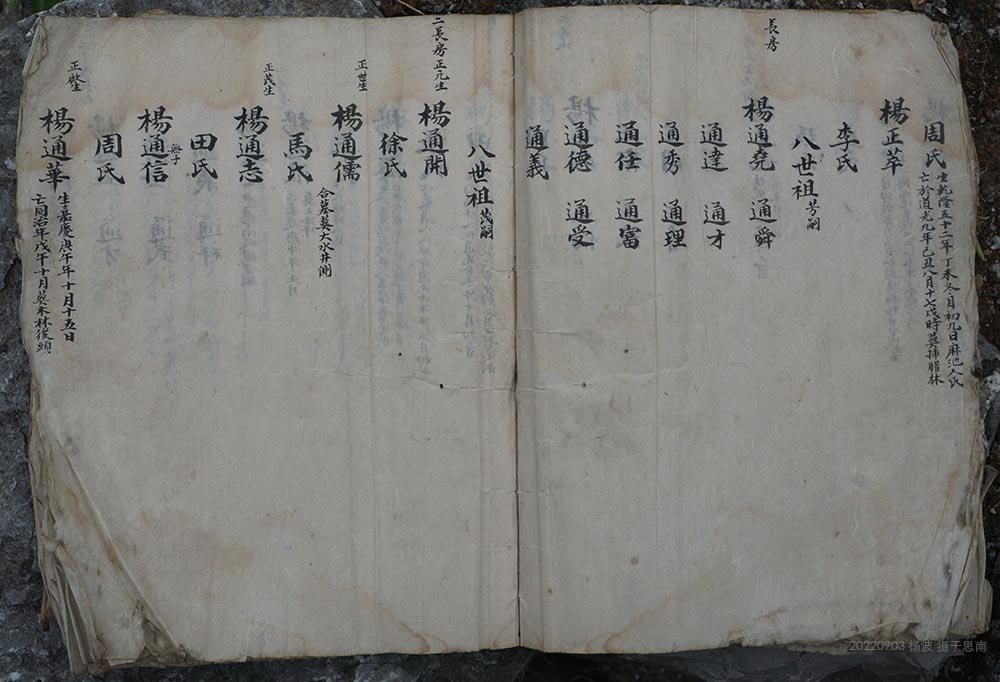 周氏 生乾隆五十二年丁未冬月初九日麻池人氏
亡於道光九年己丑八月十七戌時葬捕腊林
楊正萃
李氏
八世祖 芳嗣
長房
楊通堯 通舜
通達 通才
通秀 通理
通任 通富
通德 通受
通義
八世祖 茂嗣
二長房正元生
楊通開
徐氏
正世生
楊通儒
合墓葬大水井側
馬氏
正茂生
楊通志
田氏
無子
楊通信
周氏
正啟生
楊通華 生嘉慶庚午年十月十五日
亡同治年戊午十月葬木林後頭
20220903 杨波 摄于思南